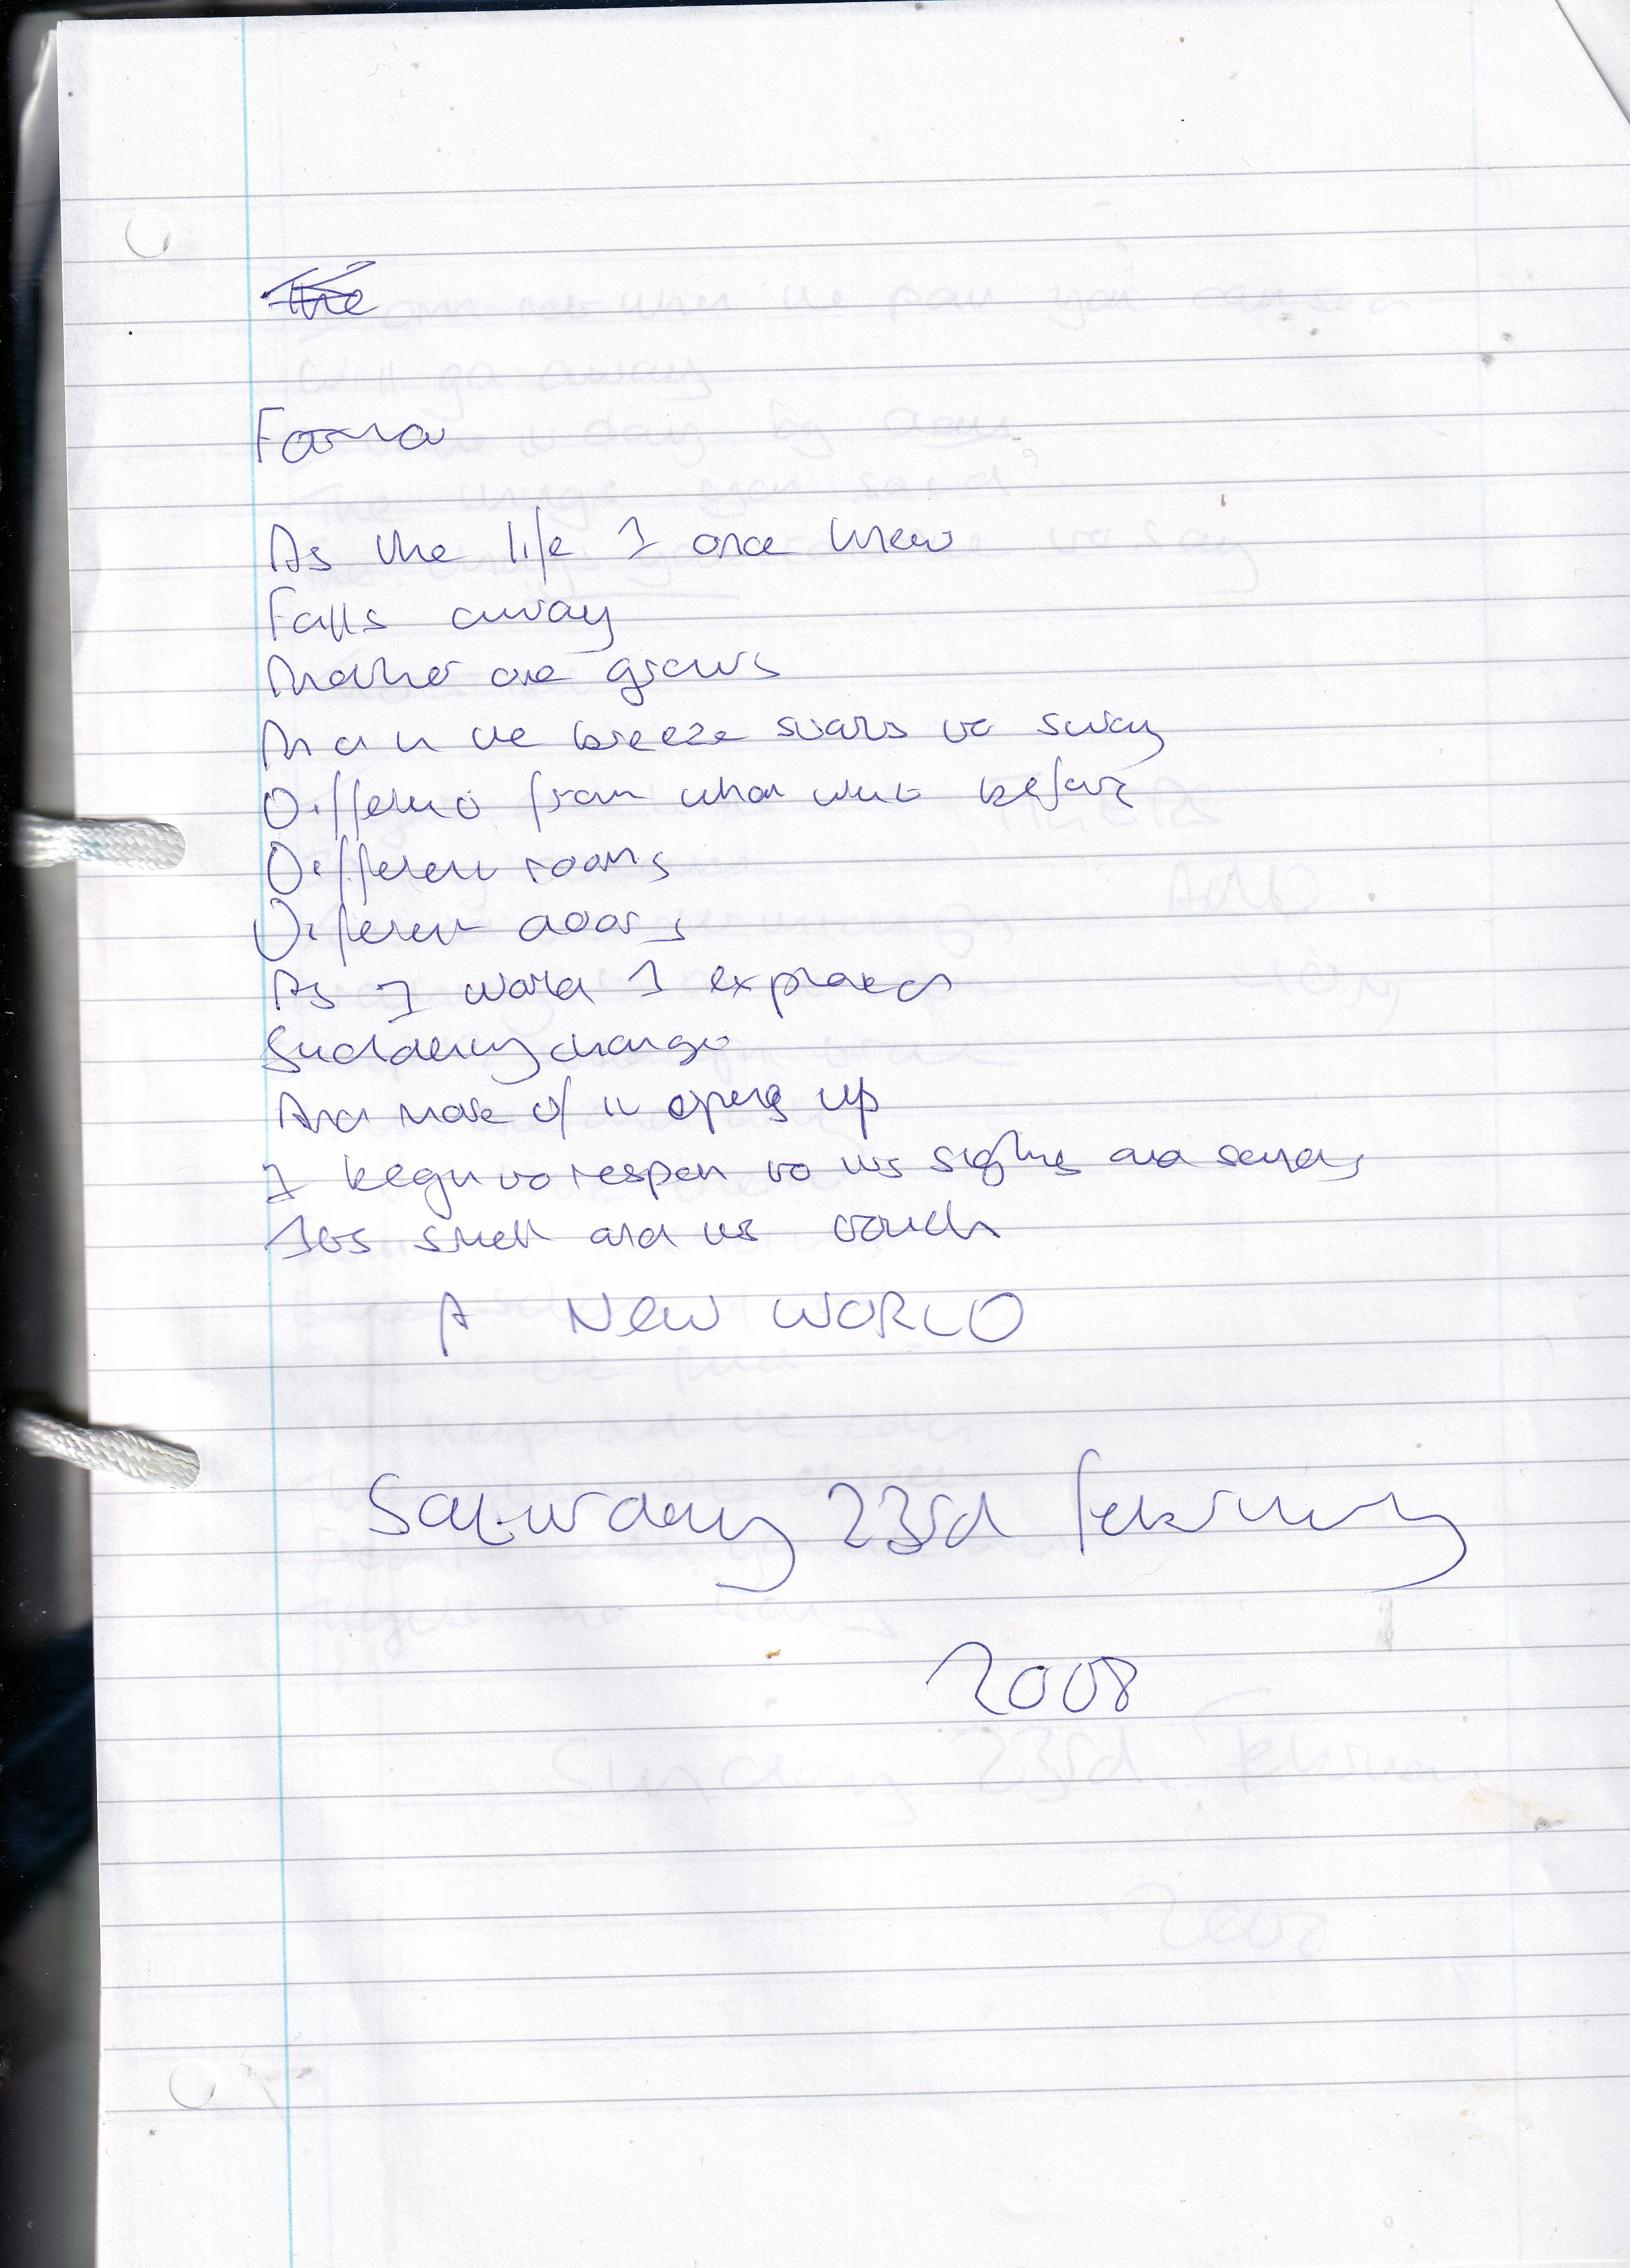 The
As the life I once knew
Falls away
Another one grows
And in the breeze starts to sway
Different from what went before
Different rooms
Different doors
As I world I explored
Suddenly change
And more of it opens up
I begin to respon to its sights and sounds
Its smell and its touch
A NEW WORLD
Saturday 23rd February
2008